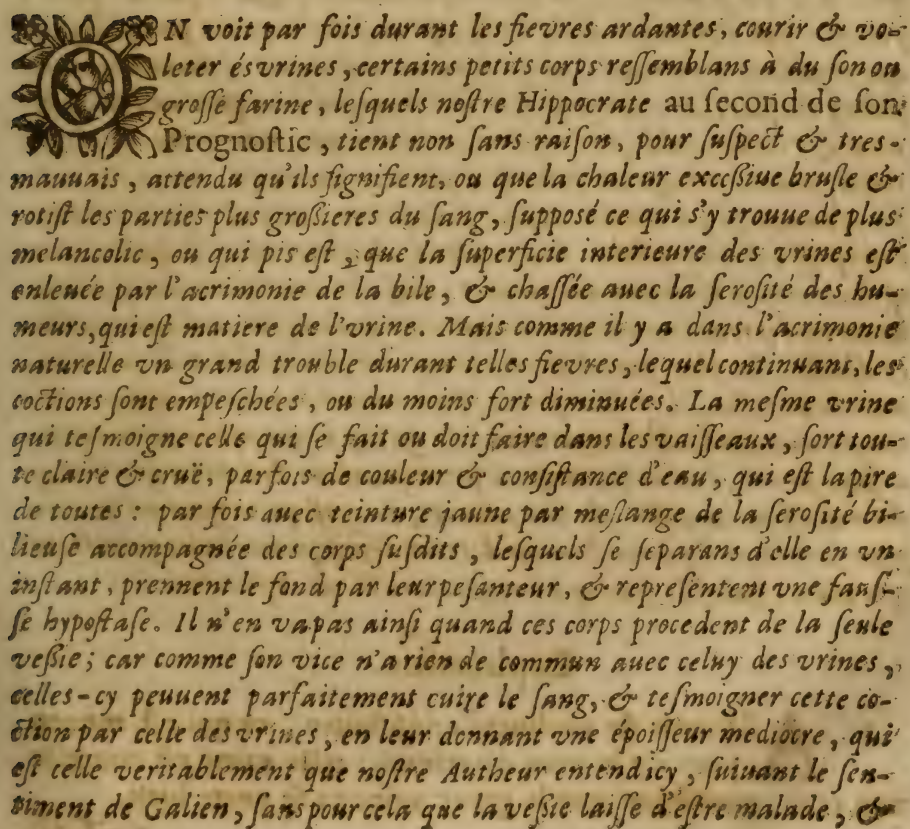 ON voit par fois durant les fievres ardantes, courir & vo-
leter és vrines, certains petits corps ressemblans à du son ou
grosse farine, lesquels nostre Hippocrate au second de son
Prognostic, tient non sans raison, pour suspect & tres-
mauuais, attendu qu'ils signifient, ou que la chaleur excessiue brusle &
rotist les parties plus grossieres du sang, supposé ce qui s'y trouue de plus
melancolic, ou qui pis est, que la superficie interieure des vrines est
enleuée par l'acrimonie de la bile, & chassée auec la serosité des hu-
meurs, qui est matiere de l'vrine. Mais comme il y a dans l'acrimonie
naturelle vn grand trouble durant telles fievres, lequel continuans, les
coctions sont empeschées, ou du moins fort diminuées. La mesme vrine
qui tesmoigne celle qui se fait ou doit faire dans les vaisseaux, sort tou-
te claire & cruë, parfois de couleur & consistance d'eau, qui est la pire
de toutes : par fois auec teinture jaune par meslange de la serosité bi-
lieuse accompagnée des corps susdits, lesquels se separans d'elle en vn
instant, prennent le fond par leur pesanteur, & representent vne faus-
se hypostase. Il n'en va pas ainsi quand ces corps procedent de la seule
vessie; car comme son vice n'a rien de commun auec celuy des vrines,
celles-cy peuuent parfaitement cuire le sang, & tesmoigner cette co-
ction par celle des vrines, en leur donnant vne époisseur mediocre, qui
est celle veritablement que nostre Autheur entend icy, suiuant le sen-
timent de Galien, sans pour cela que la vessie laisse d'estre malade, &